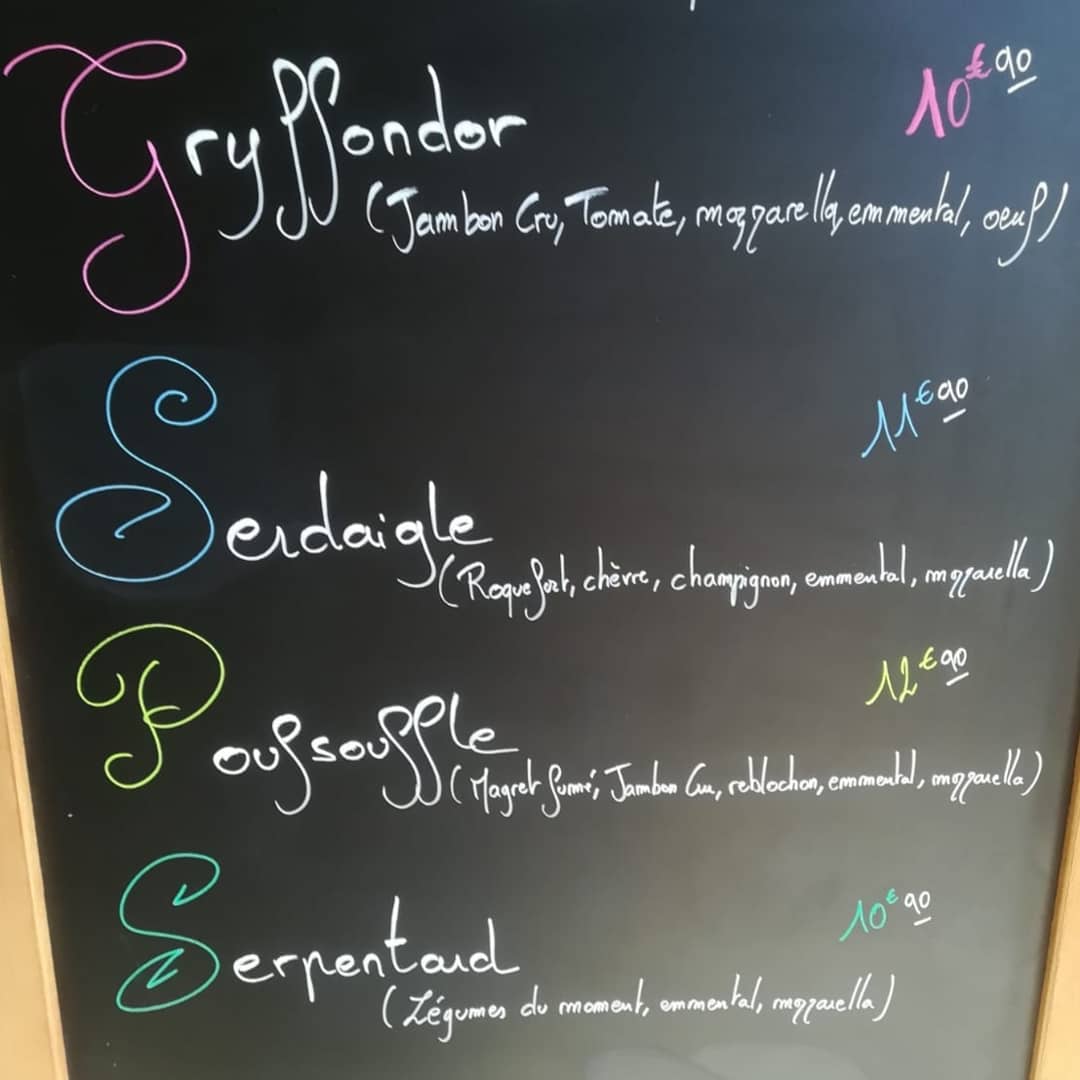 Gryffondor 10€90
(Jambon Cru, Tomate, mozzarella, emmental, oeuf)
Serdaigle 11€90
(Roquefort, chèvre, champignon, emmental, mozzarella)
Poufsouffle 12€90
(Magret fumé, Jambon Cru, reblochon, emmental, mozzarella)
Serpentard 10€90
(Légumes du moment, emmental, mozzarella)